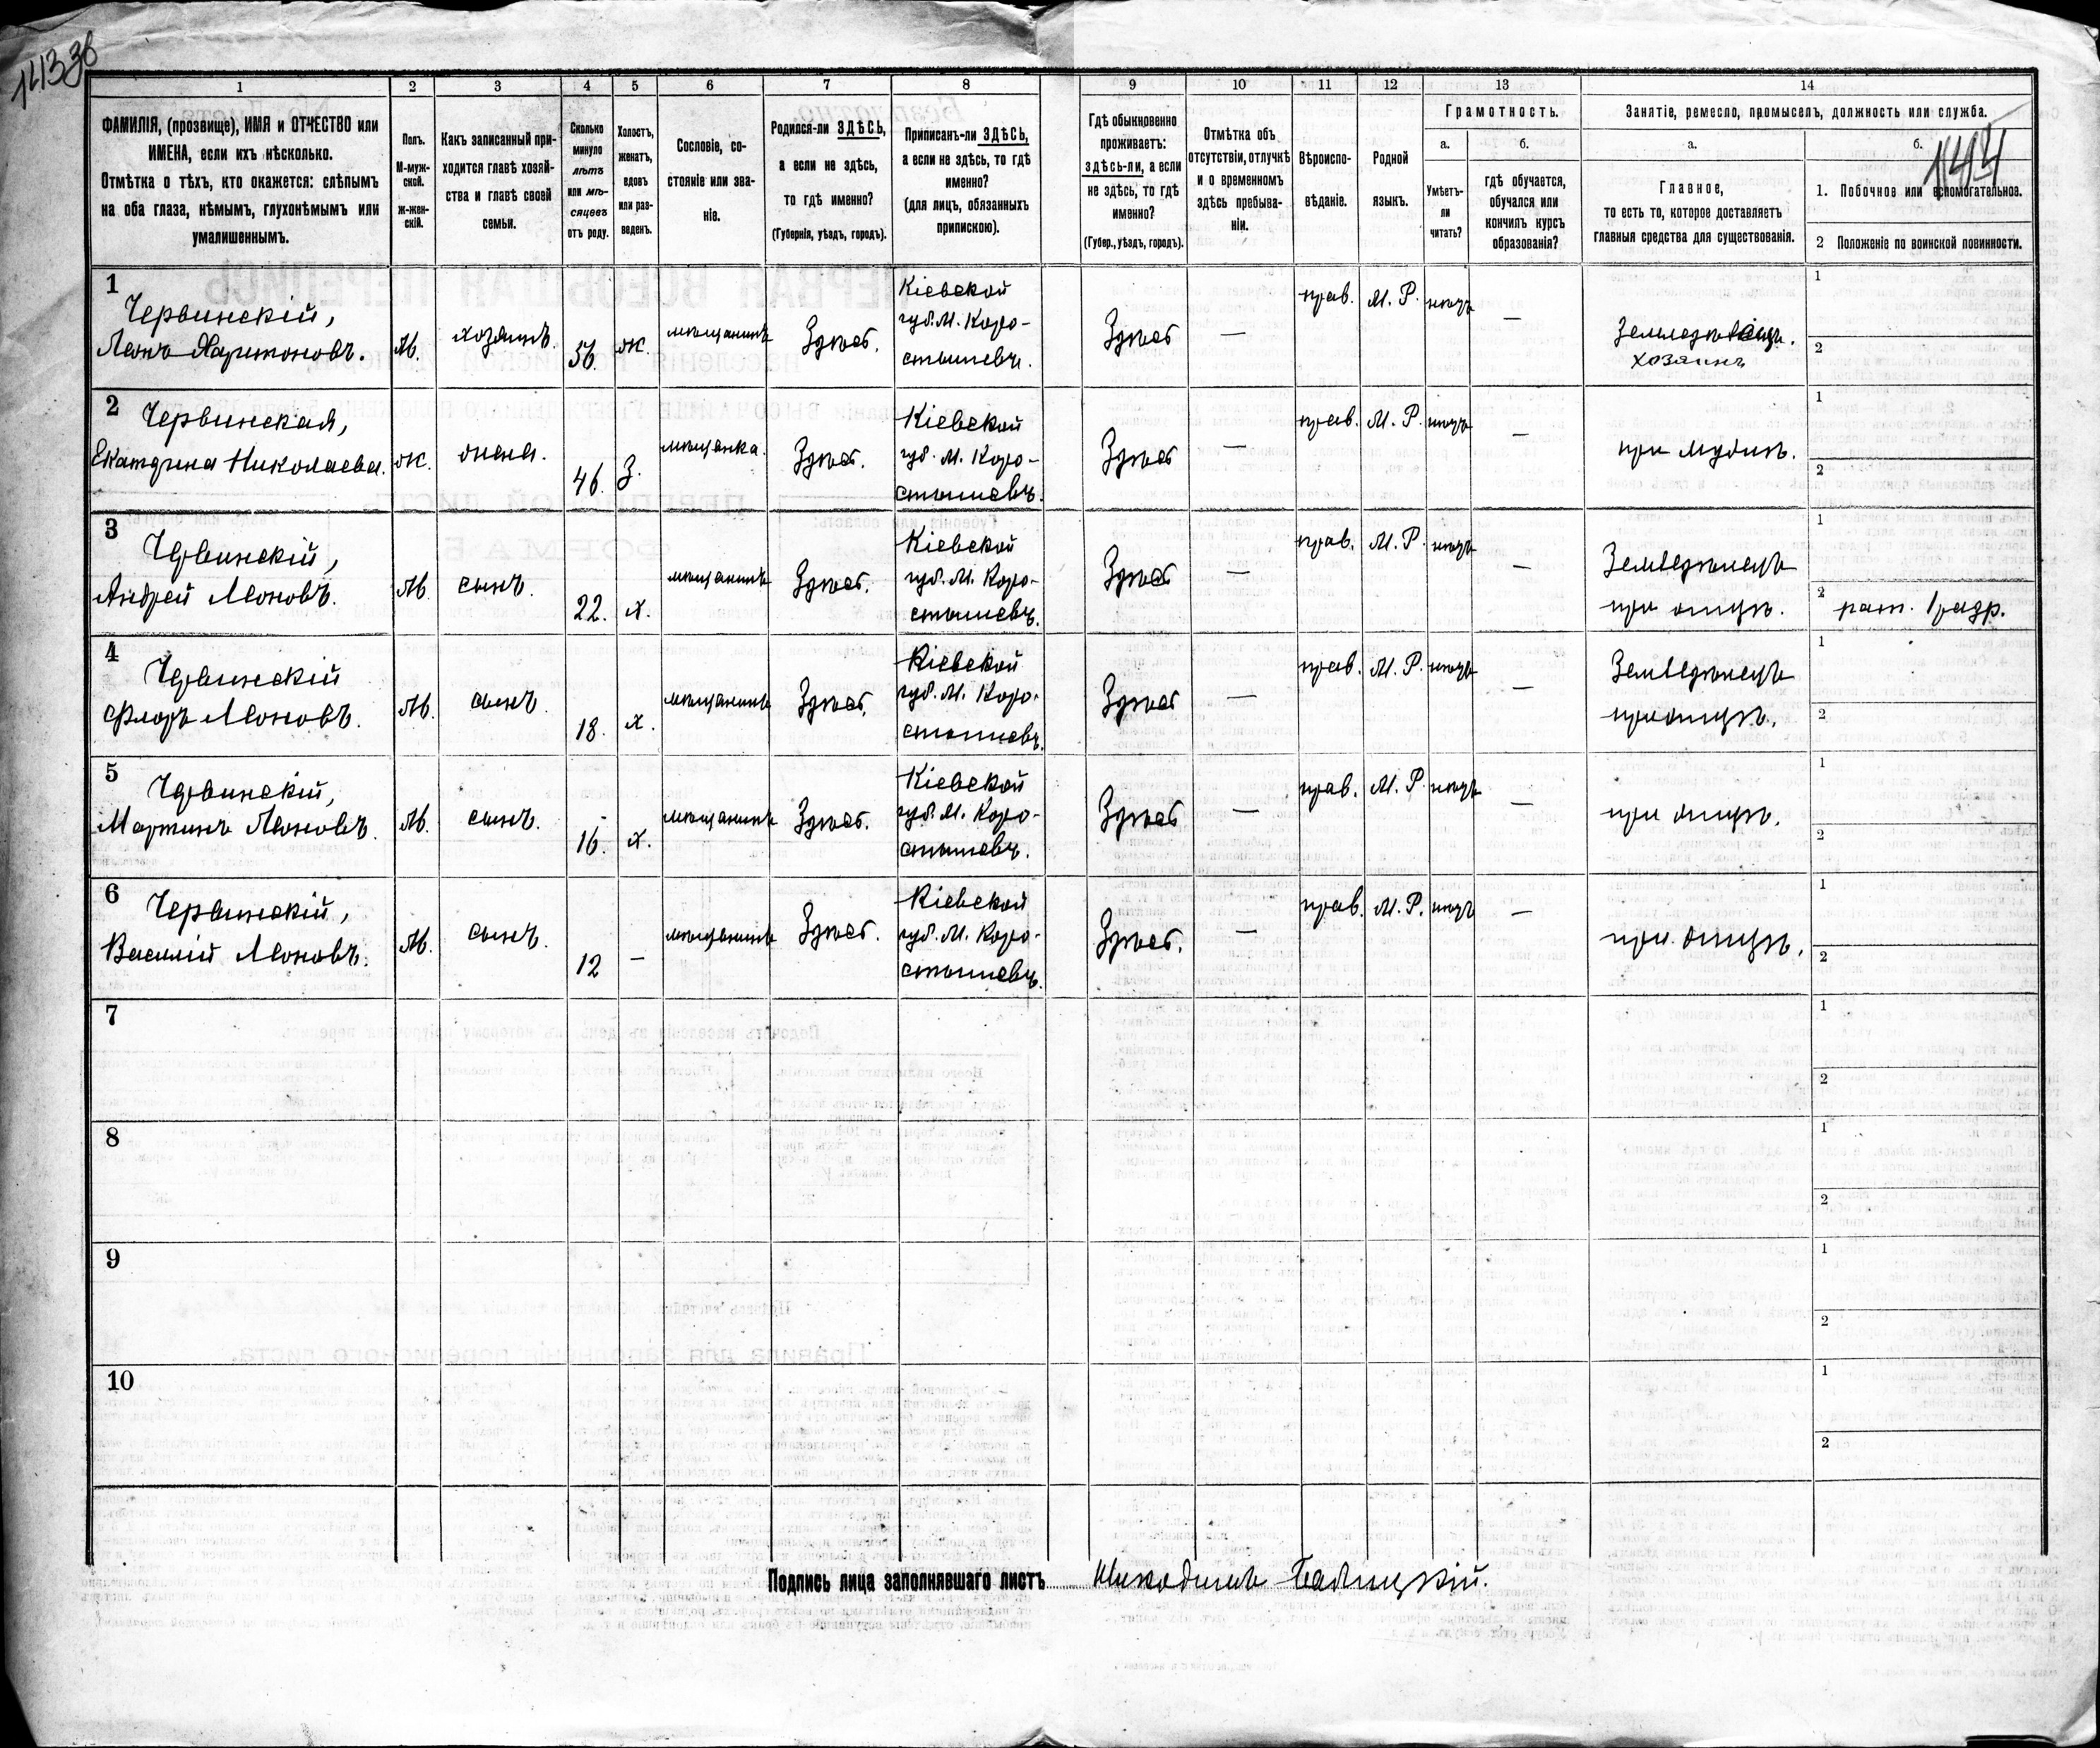 14336
144
1 2 3 4 5 6 7 8 9 10 11 12 13 14
ФАМИЛІЯ, (прозвище), ИМЯ и ОТЧЕСТВО или
ИМЕНА, если ихъ нѣсколько.
Отмѣтка о тѣхъ, кто окажется: слѣпымъ
на оба глаза, нѣмымъ, глухонѣмымъ или
умалишеннымъ.
Полъ.
М-муж-
ской.
Ж-жен-
скій.
Какъ записанный при-
ходится главѣ хозяй-
ства и главѣ своей
семьи.
Сколько
минуло
лѣтъ
или мѣ-
сяцевъ
отъ роду.
Холостъ,
женатъ,
вдовъ
или раз-
веденъ.
Сословіе, со-
стояніе или зва-
ніе.
Родился-ли ЗДѢСЬ,
а если не здѣсь,
то гдѣ именно?
(Губернія, уѣздъ, городъ).
Приписанъ-ли ЗДѢСЬ,
а если не здѣсь, то гдѣ
именно?
(для лицъ, обязанныхъ
припискою).
Гдѣ обыкновенно
проживаетъ:
здѣсь-ли, а если
не здѣсь, то гдѣ
именно?
(Губер., уѣздъ, городъ).
Отмѣтка объ
отсутствіи, отлучкѣ
и о временномъ
здѣсь пребыва-
ніи.
Вѣроиспо-
вѣданіе.
Родной
языкъ.
Грамотность.
а.
Умѣетъ-
ли
читать?
б.
гдѣ обучается,
обучался или
кончилъ курсъ
образованія?
Занятіе, ремесло, промыселъ, должность или служба.
а.
Главное,
то есть то, которое доставляетъ
главныя средства для существованія.
б.
1. Побочное или вспомогательное.
2 Положеніе по воинской повинности.
1
Червинскій,
Леонъ Харитоновъ.
М.
хозяинъ.
56.
ж.
мѣщанинъ
Здѣсь.
Кіевской
губ. М. Коро-
стышевъ.
Здѣсь
—
прав.
М. Р.
нѣтъ
—
Земледѣлецъ.
хозяинъ
1
2
2
Червинская,
Екатерина Николаева.
ж.
жена.
46.
З.
мѣщанка.
Здѣсь.
Кіевской
губ. М. Коро-
стышевъ.
Здѣсь
—
прав.
М. Р.
нѣтъ
—
при мужѣ.
1
2
3
Червинскій,
Андрей Леоновъ.
М.
сынъ.
22.
х.
мѣщанинъ
Здѣсь.
Кіевской
губ. М. Коро-
стышевъ.
Здѣсь
—
прав.
М. Р.
нѣтъ
—
Земледѣлецъ
при отцѣ.
1
2 рат. 1 разр.
4
Червинскій
Флоръ Леоновъ.
М.
сынъ.
18.
х.
мѣщанинъ
Здѣсь.
Кіевской
губ. М. Коро-
стышевъ.
Здѣсь
—
прав.
М. Р.
нѣтъ
—
Земледѣлецъ
при отцѣ.
1
2
5
Червинскій,
Мартинъ Леоновъ.
М.
сынъ.
16.
х.
мѣщанинъ
Здѣсь.
Кіевской
губ. М. Коро-
стышевъ.
Здѣсь
—
прав.
М. Р.
нѣтъ
—
при отцѣ.
1
2
6
Червинскій,
Василій Леоновъ.
М.
сынъ.
12
—
мѣщанинъ
Здѣсь.
Кіевской
губ. М. Коро-
стышевъ.
Здѣсь.
—
прав.
М. Р.
нѣтъ
—
при отцѣ.
1
2
7
1
2
8
1
2
9
1
2
10
1
2
Подпись лица заполнявшаго листъ Никодимъ Балицкій.